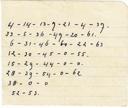 4-14-13-9-21-4-39.
33-5-36-49-20-61.
6-31-46-60-22-63
12-30-45-0-55.
15-29-44-0-0.
28-39-54-0-62
38-0-0
52-53.